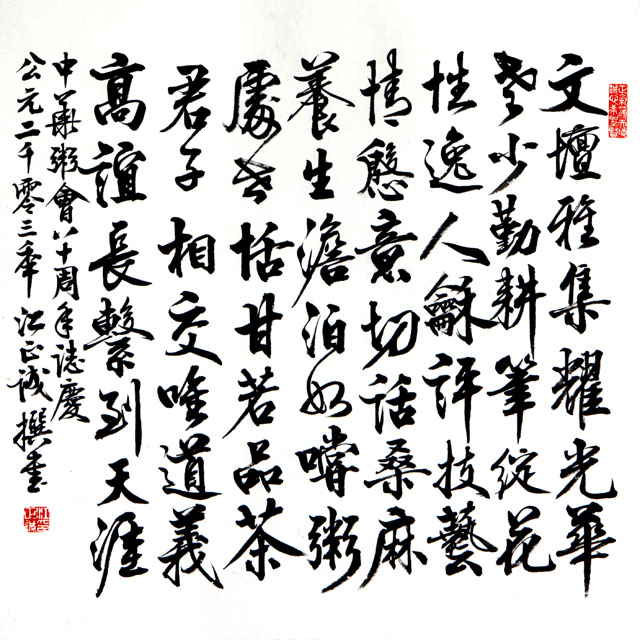 文壇雅集耀光華
老少勤耕筆綻花
性逸人龢評技藝
情慇意切話桑麻
養生澹泊如嚐粥
處世恬甘若品茶
君子相交唯道義
高誼長繫到天涯
中華粥會八十周年誌慶
公元二千零三年江正誠撰書